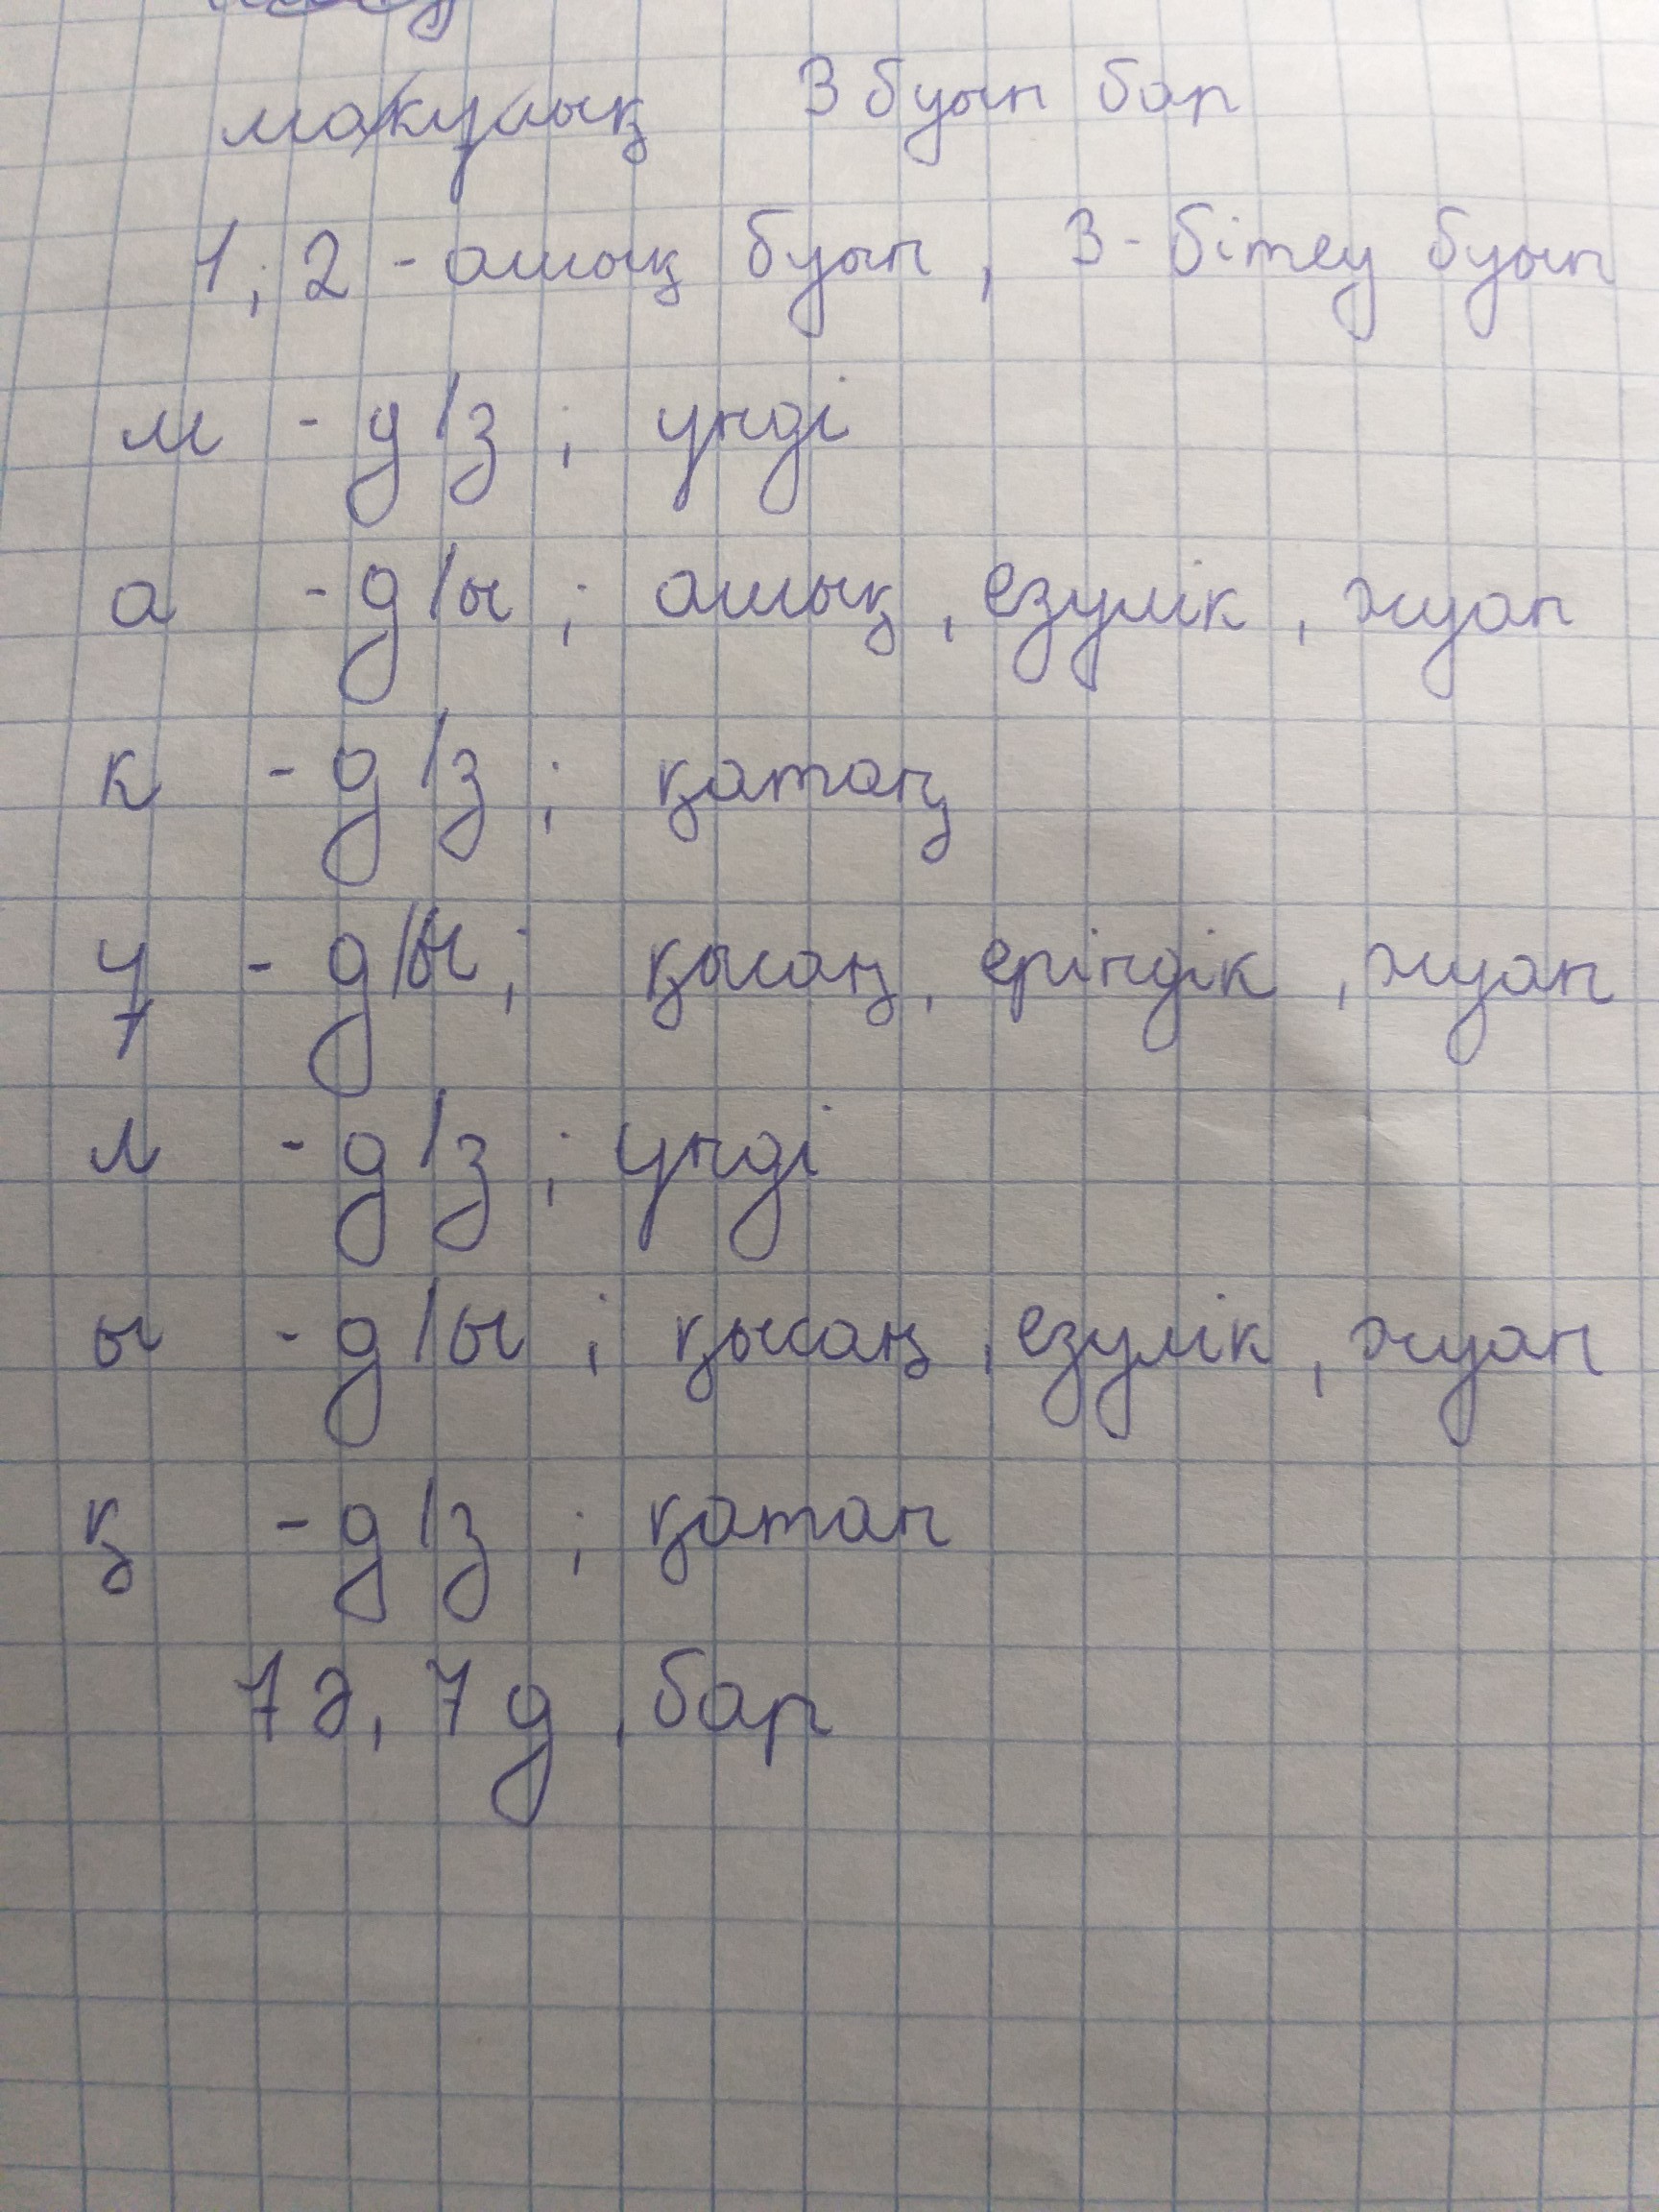 мақұлық 3 буын бар
1, 2 - ашық буын, 3 - бітеу буын
м - д/з; үнді
а - д/ы; ашық, езулік, жуан
к - д/з; қатаң
ұ - д/ы; қысаң, еріндік, жуан
л - д/з; үнді
ы - д/ы; қысаң, езулік, жуан
қ - д/з; қатан
7ә, 7д, бар